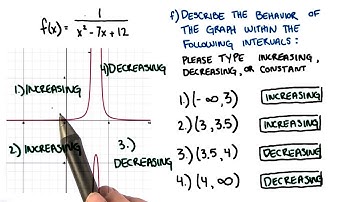 f(x) = 1
x² - 7x + 12
4) DECREASING
1.) INCREASING
2.) INCREASING
3.)
DECREASING
f) DESCRIBE THE BEHAVIOR OF
THE GRAPH WITHIN THE
FOLLOWING INTERVALS:
PLEASE TYPE INCREASING,
DECREASING, OR CONSTANT
1.) (-∞, 3) INCREASING
2.) (3, 3.5) INCREASING
3.) (3.5, 4) DECREASING
4.) (4, ∞) DECREASING